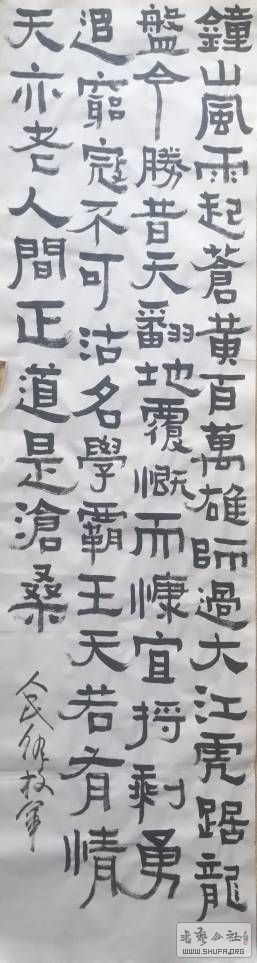 鐘山風雨起蒼黃百萬雄師過大江虎踞龍
盤今勝昔天翻地覆慨而慷宜將剩勇
追窮寇不可沽名學霸王天若有情
天亦老人間正道是滄桑
人民解放軍
書藝公社
WWW.SHUFA.ORG